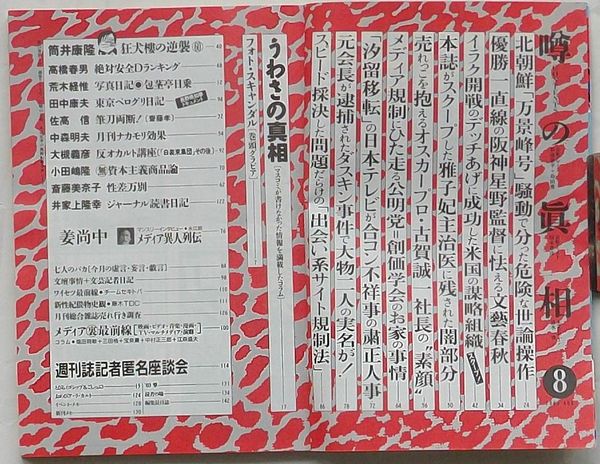 噂の眞相
8
北朝鮮「万景峰号」騒動で分った危険な世論操作
24
優勝一直線の阪神星野監督に怯える文藝春秋
34
イラク開戦のデッチあげに成功した米国の謀略組織
42
本誌がスクープした雅子妃主治医に残された闇部分
50
売れっこを抱えるオスカープロ・古賀誠一社長の"素顔"
56
メディア規制にひた走る公明党=創価学会のお家の事情
64
「汐留移転」の日本テレビが合コン不祥事の粛正人事
72
元会長が逮捕されたダスキン事件で大物二人の実名が!
78
スピード採決した問題だらけの「出会い系サイト規制法」
86
うわさの真相
《マスコミが書けなかった情報を満載したコラム》
17
フォト・スキャンダル《巻頭グラビア》
筒井康隆 狂犬樓の逆襲
40
高橋春男 絶対安全Dランキング
荒木経惟 写真日記●包茎亭日乗
田中康夫 東京ペログリ日記
佐高信 筆刀両断!
中森明夫 月刊ナカモリ効果
54
大槻義彦 反オカルト講座
小田嶋隆 無資本主義商品論
斎藤美奈子 性差万別
62
井家上隆幸 ジャーナル読書日記
122
姜尚中 メディア異人列伝
76
七人のバカ
文壇事情+文芸記者日記
ワイセツ最前線●チームセキトバ
新性紀欲物史観●藤木TDC
月刊総合雑誌売れ行き調査
メディア裏最前線
100
週刊誌記者匿名座談会
114